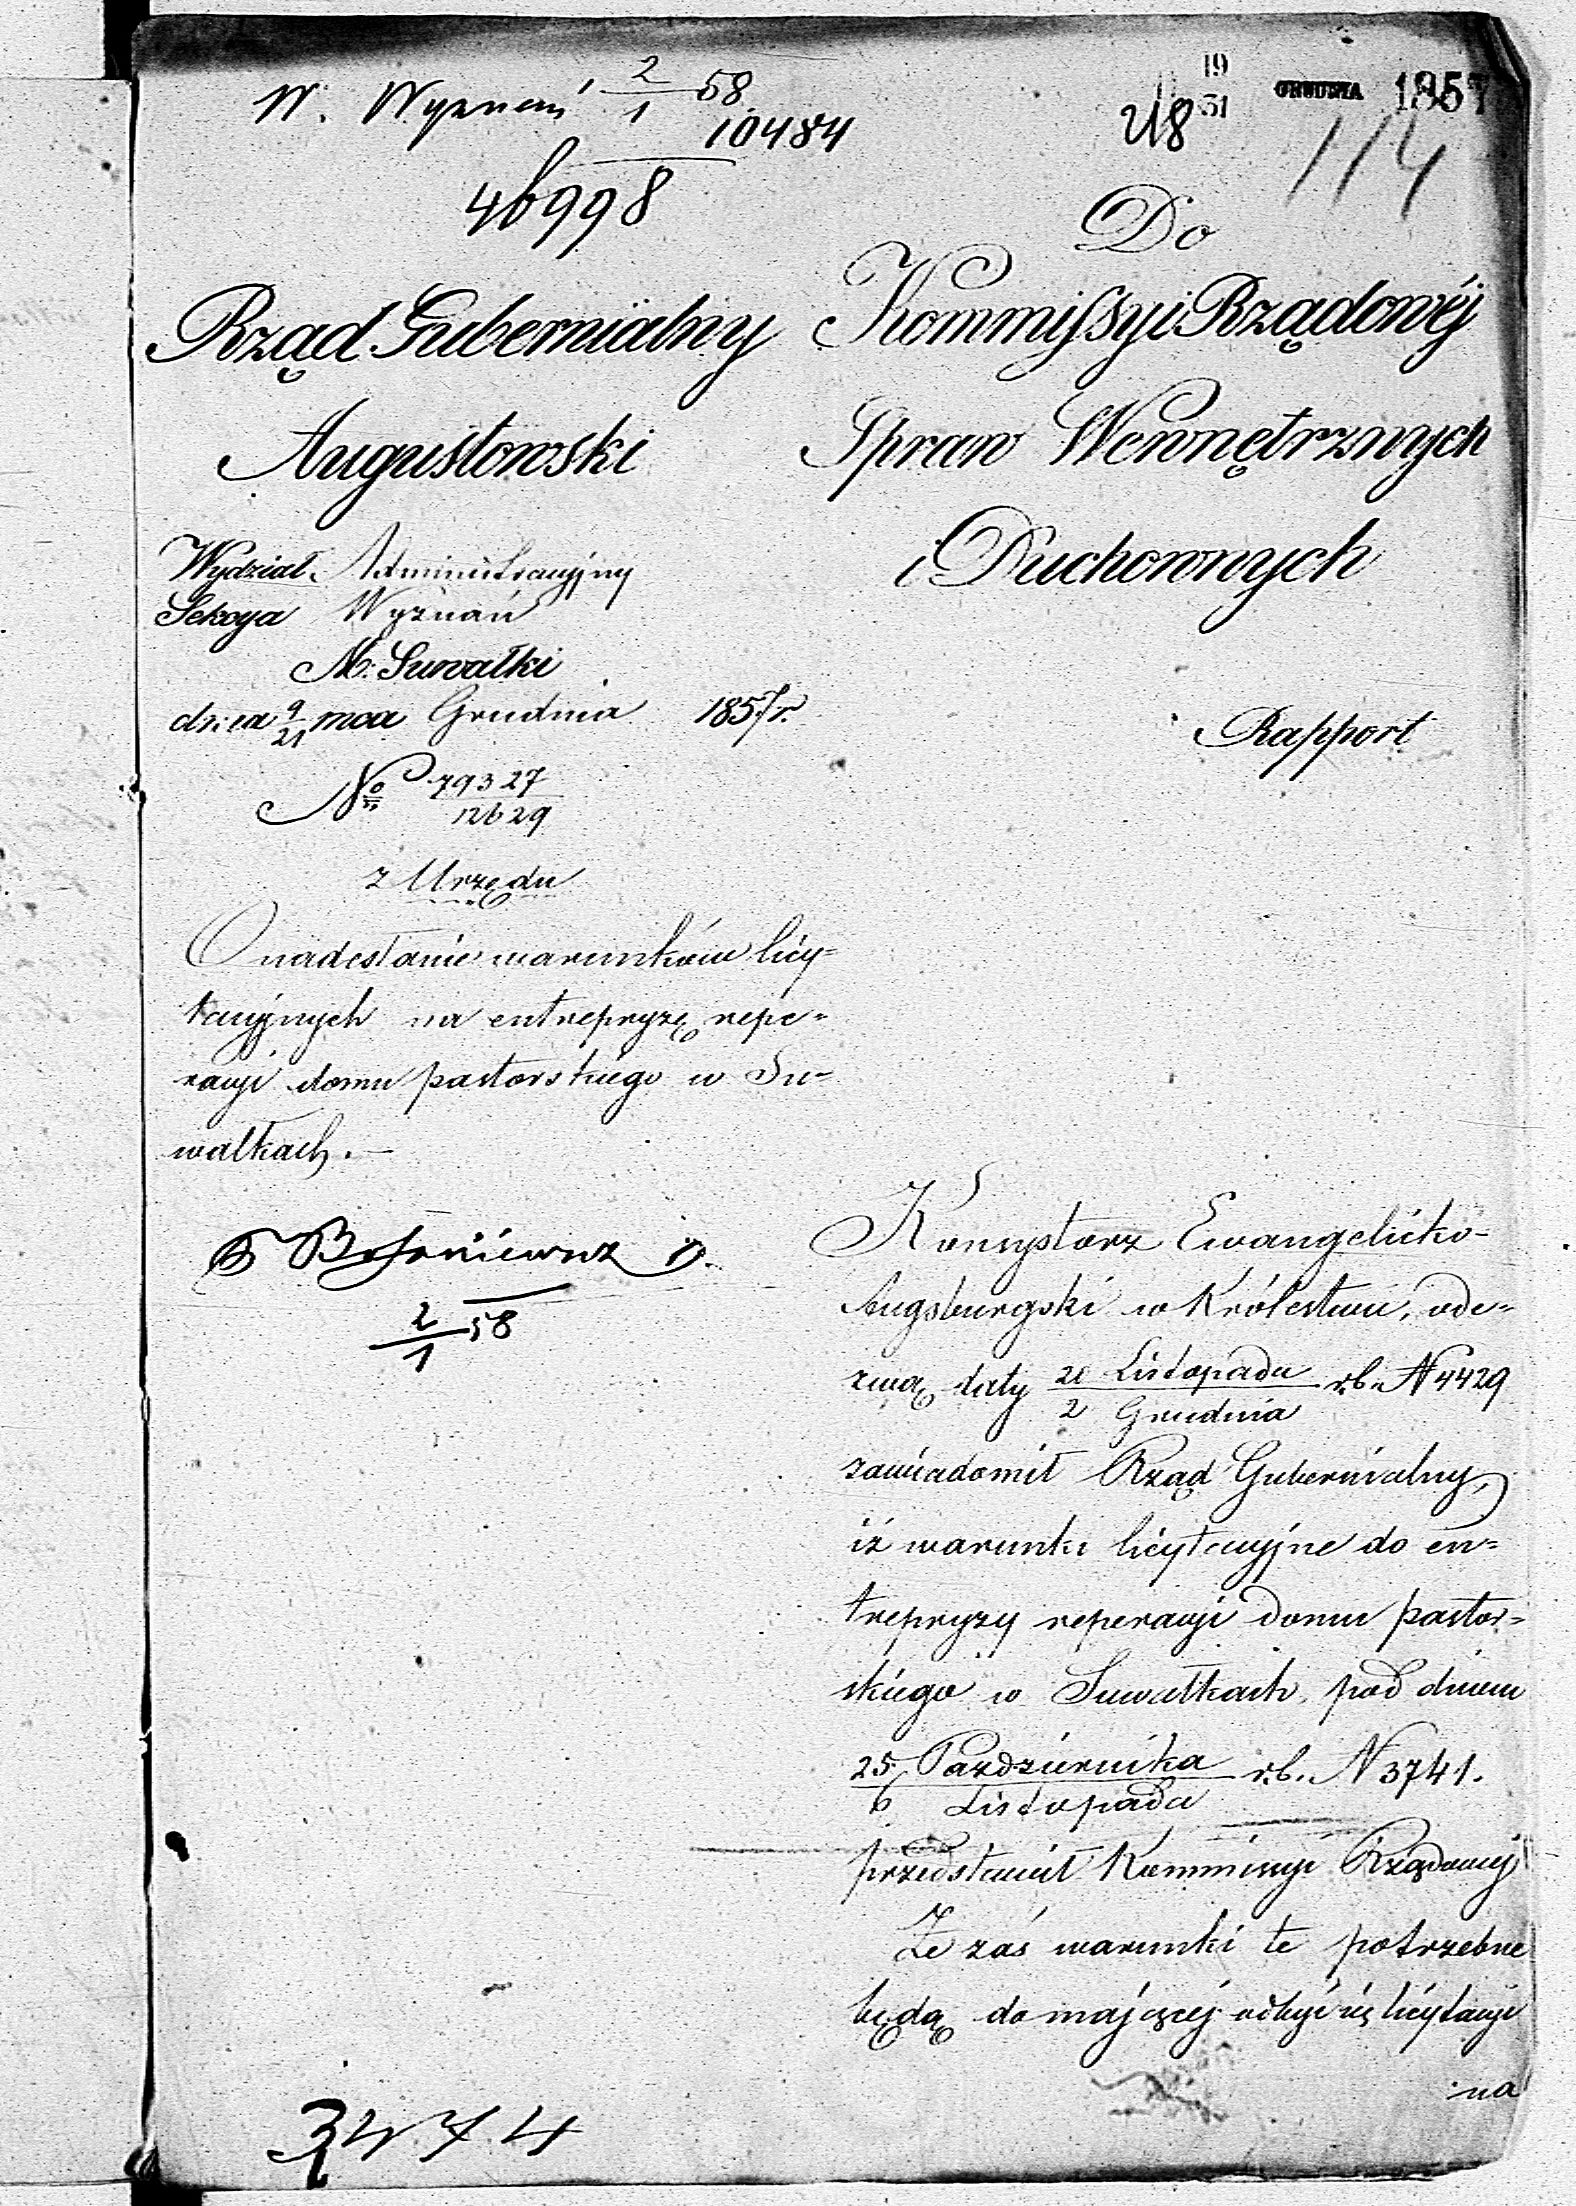 W. Wyznań 2/1 58
10484
46998
19/31 GRUDNIA 1857
218
114
Rząd Gubernialny
Augustowski
Wydział Administracyjny
Sekcya Wyznań
M. Suwałki
dnia 9/21 mca Grudnia 1857 r.
No 79327/12629
z Urzędu
O nadesłanie warunków licy=
tacyjnych na entrepryzę repe=
racyi domu pastorskiego w Su=
wałkach.—
2/1 58
Do
Kommissyi Rządowéj
Spraw Wewnętrznych
i Duchownych
Rapport
Konsystorz Ewangelicko-
Augsburgski w Królestwie, ode=
zwą daty 20 Listopada / 2 Grudnia r.b. N 4429
zawiadomił Rząd Gubernialny,
iż warunki licytacyjne do en=
trepryzy reperacyi domu pastor=
skiego w Suwałkach, pod dniem
25 Pazdziernika / 6 Listopada r.b. N 3741.
przedstawił Kommissyi Rządowej
Że zaś warunki te potrzebne
będą do mającej odbyć się licytacyi
na
3474